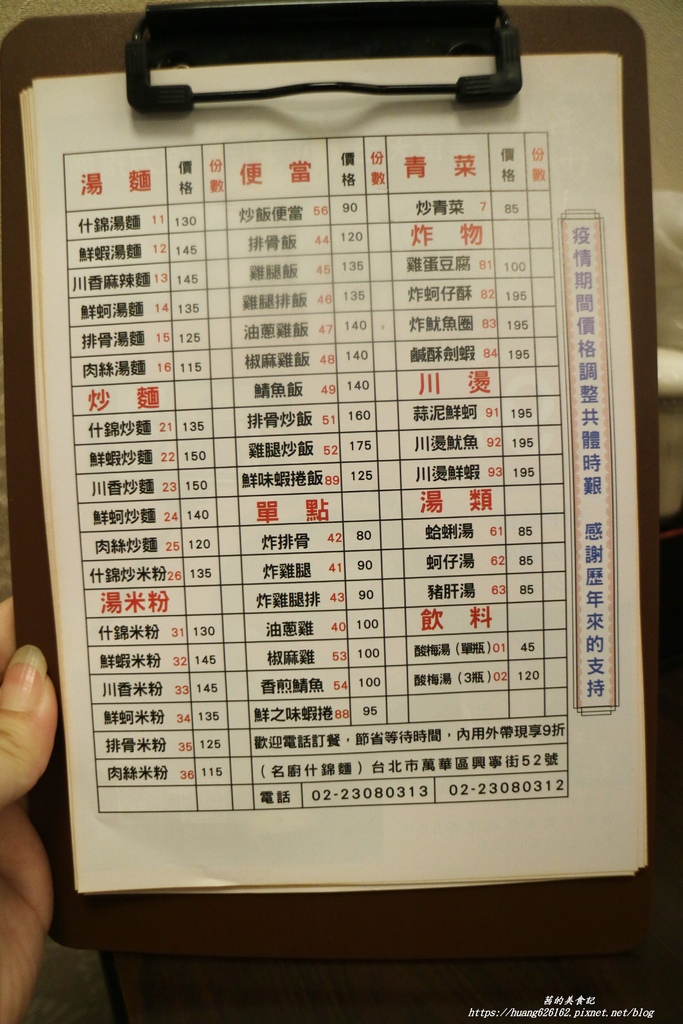 湯麵 價格 份數 便當 價格 份數 青菜 價格 份數
什錦湯麵 11 130 炒飯便當 56 90 炒青菜 7 85
鮮蝦湯麵 12 145 排骨飯 44 120 炸物
川香麻辣麵 13 145 雞腿飯 45 135 雞蛋豆腐 81 100
鮮蚵湯麵 14 135 雞腿排飯 46 135 炸蚵仔酥 82 195
排骨湯麵 15 125 油蔥雞飯 47 140 炸魷魚圈 83 195
肉絲湯麵 16 115 椒麻雞飯 48 140 鹹酥劍蝦 84 195
炒麵 鯖魚飯 49 140 川燙
什錦炒麵 21 135 排骨炒飯 51 160 蒜泥鮮蚵 91 195
鮮蝦炒麵 22 150 雞腿炒飯 52 175 川燙魷魚 92 195
川香炒麵 23 150 鮮味蝦捲飯 89 125 川燙鮮蝦 93 195
鮮蚵炒麵 24 140 單點 湯類
肉絲炒麵 25 120 炸排骨 42 80 蛤蜊湯 61 85
什錦炒米粉 26 135 炸雞腿 41 90 蚵仔湯 62 85
湯米粉 炸雞腿排 43 90 豬肝湯 63 85
什錦米粉 31 130 油蔥雞 40 100 飲料
鮮蝦米粉 32 145 椒麻雞 53 100 酸梅湯（單瓶）01 45
川香米粉 33 145 香煎鯖魚 54 100 酸梅湯（3瓶）02 120
鮮蚵米粉 34 135 鮮之味蝦捲 88 95
排骨米粉 35 125 歡迎電話訂餐，節省等待時間，內用外帶現享9折
肉絲米粉 36 115 （名廚什錦麵）台北市萬華區興寧街52號
電話 02-23080313 02-23080312
疫情期間價格調整共體時艱 感謝歷年來的支持
茜的美食記
https://huang626162.pixnet.net/blog